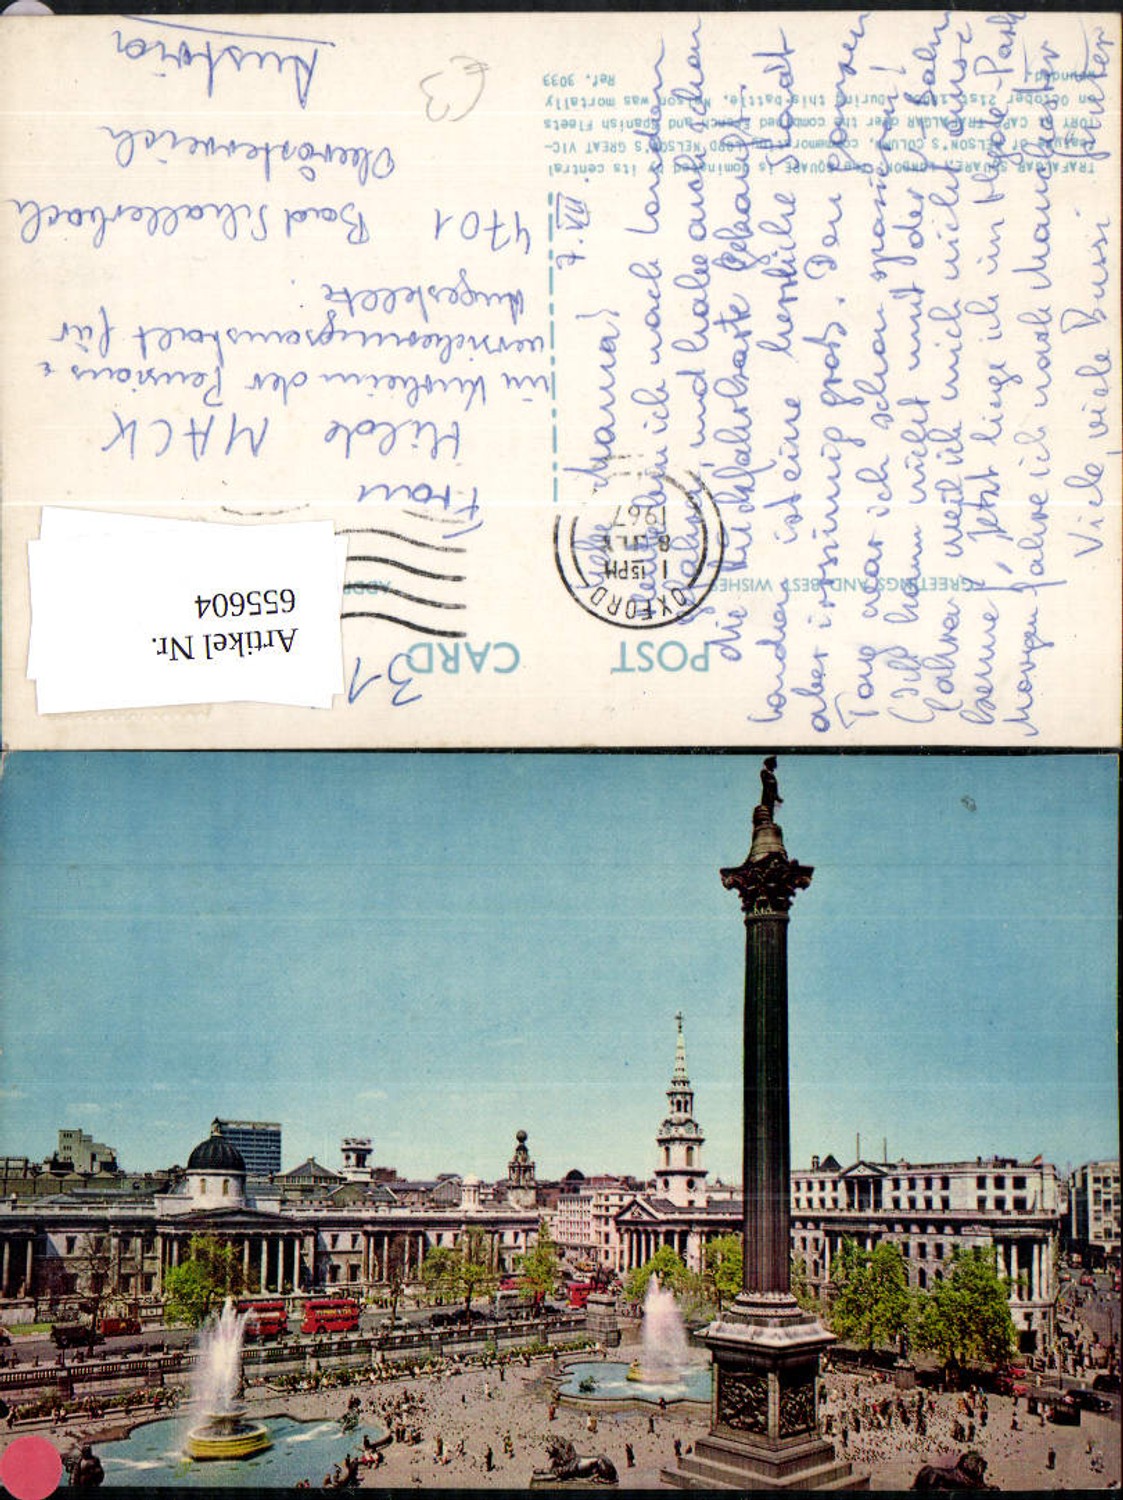 POST CARD
31
GREETINGS AND BEST WISHES
ADDR
OXFORD
1 15PM
8 JLY
1967
7. VII.
Liebe Mama!
ich nach London
gefahren, und habe auch schon
die Rückfahrkarte gekauft.
London ist eine herrliche Stadt
aber irrsinnig groß. Den ganzen
Tag war ich schon spazieren!
Ich kann nicht mit der U-Bahn
fahren weil ich mich nicht
kenne, jetzt liege ich im Hyde-Park
Morgen fahre ich nach
Viele, viele Bussi
TRAFALGAR SQUARE, LONDON. The SQUARE is dominated by its central
feature of NELSON'S COLUMN, commemorating LORD NELSON'S GREAT VIC-
TORY at CAPE TRAFALGAR over the combined French and Spanish Fleets
on October 21st, 1805. During this battle, Nelson was mortally
wounded.
Ref. 3033
Frau
Hilde MACK
im Kurheim der Pensions=
versicherungsanstalt für
Angestellte
4701 Bad Schallerbach
Oberösterreich
Austria
€3
Artikel Nr.
655604